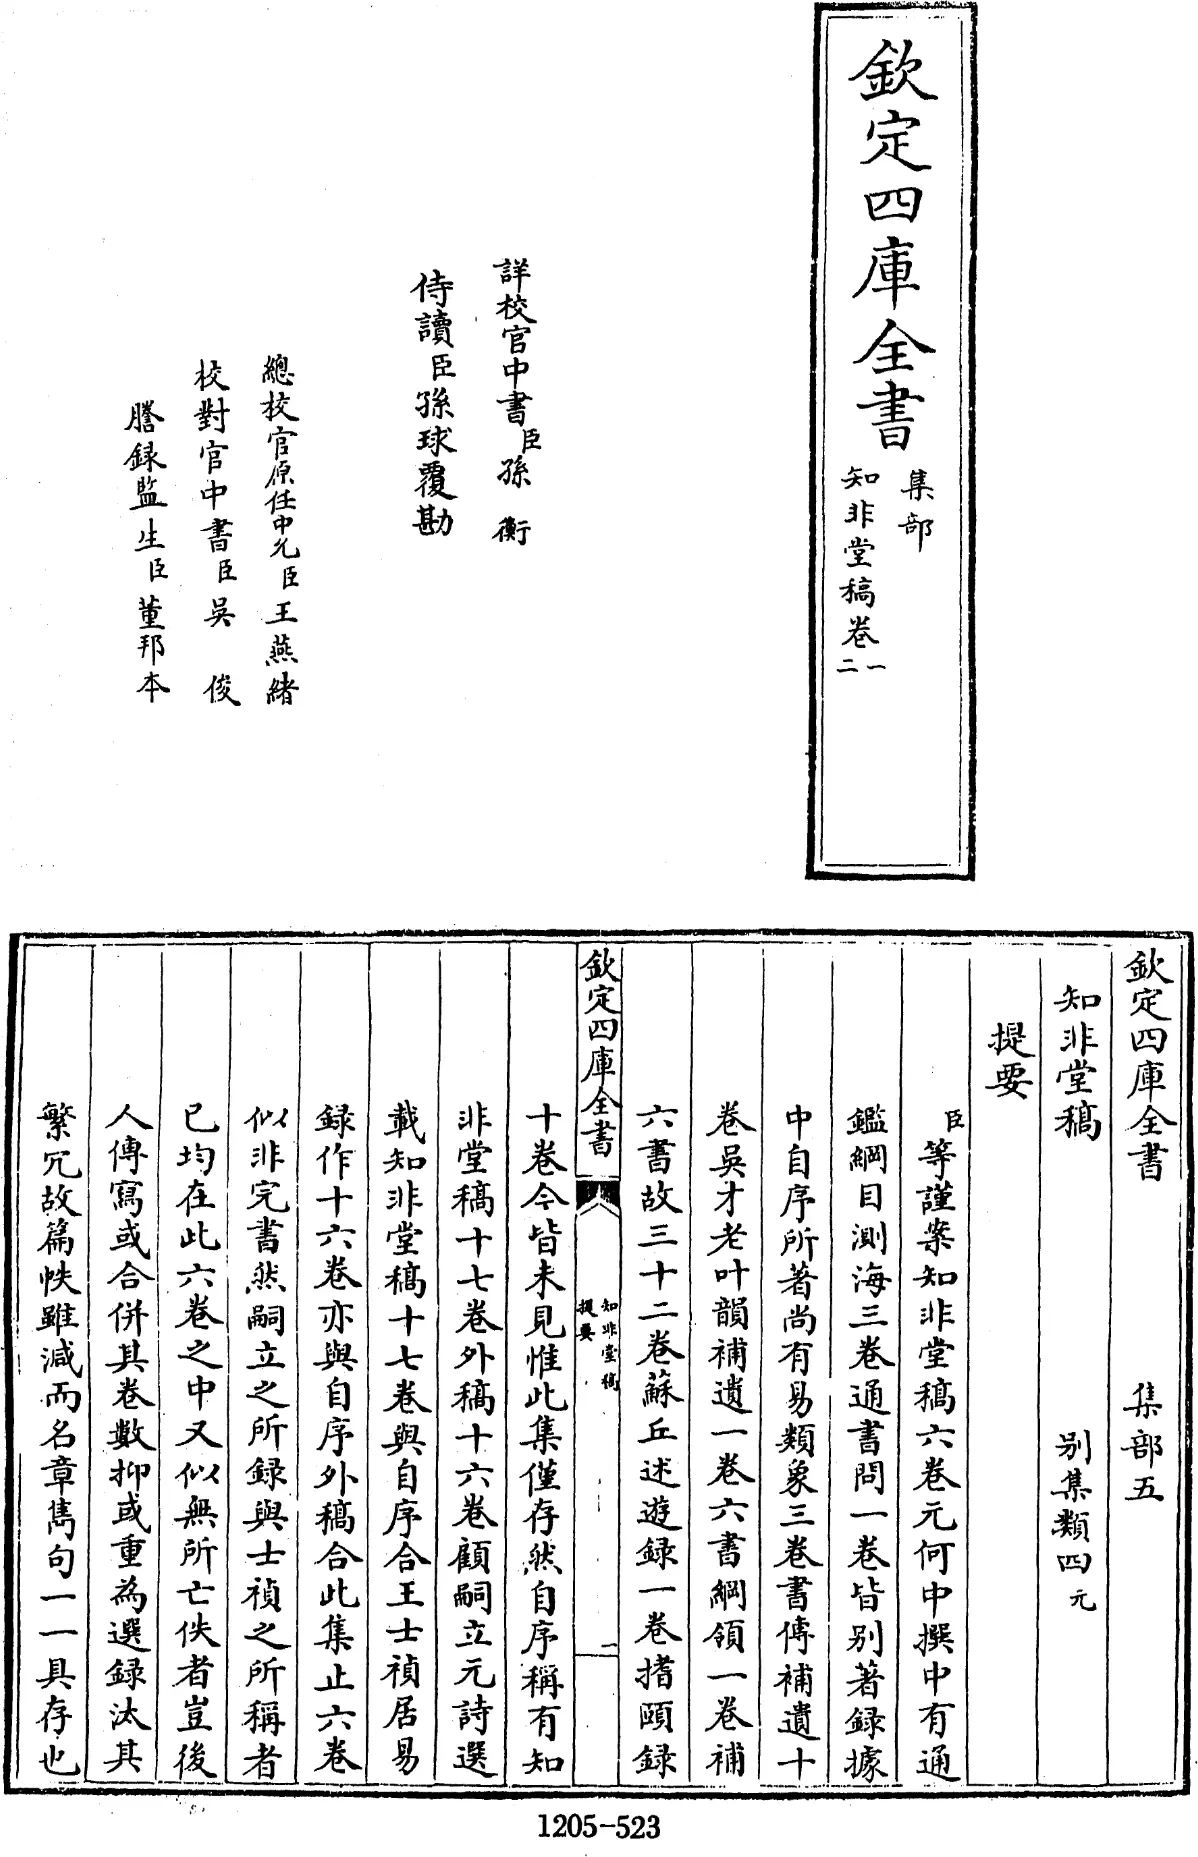 欽定四庫全書
集部
知非堂稿卷一
二
詳校官中書臣孫衡
侍讀臣孫球覆勘
總校官原任中允臣王燕緒
校對官中書臣吳俊
謄錄監生臣董邦本
欽定四庫全書 集部五
知非堂稿 别集類四元
提要
臣等謹案知非堂稿六卷元何中撰中有通
鑑綱目測海三卷通書問一卷皆别著錄據
中自序所著尚有易類象三卷書傳補遺十
卷吳才老叶韻補遺一卷六書綱領一卷補
六書故三十二卷蘇丘述遊錄一卷搘頤錄
欽定四庫全書
知非堂稿
提要
一
十卷今皆未見惟此集僅存然自序稱有知
非堂稿十七卷外稿十六卷顧嗣立元詩選
載知非堂稿十七卷與自序合王士禎居易
録作十六卷亦與自序外稿合此集止六卷
似非完書然嗣立之所録與士禎之所稱者
已均在此六卷之中又似無所亡佚者豈後
人傳寫或合併其卷數抑或重為選録汰其
繁冗故篇帙雖減而名章雋句一一具存也
1205-523